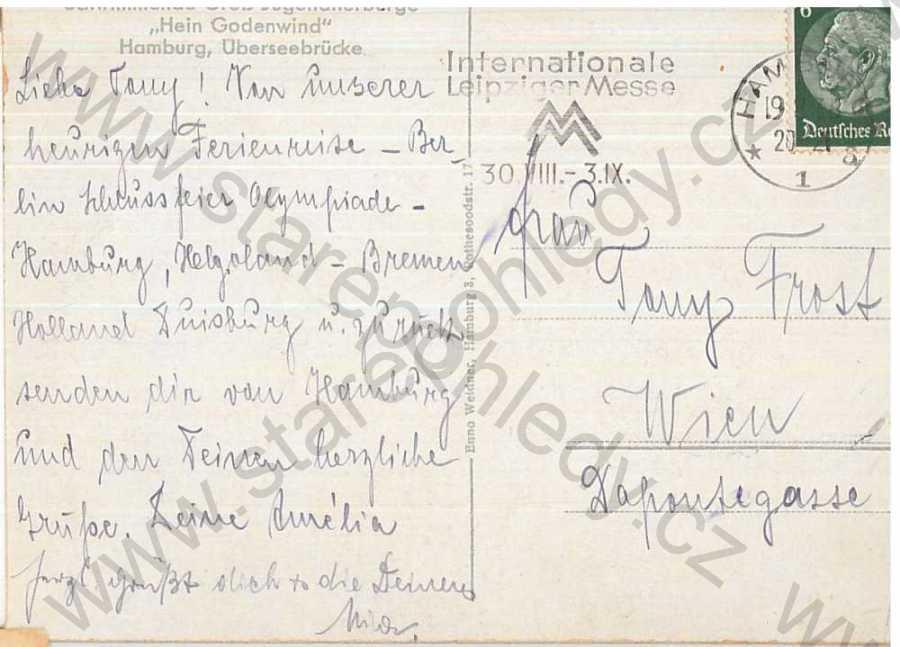 Schwimmende Groß-Jugendherberge
„Hein Godenwind"
Hamburg, Überseebrücke
Liebe Tony! Von unserer
heurigen Ferienreise – Ber-
lin Schlussfeier Olympiade –
Hamburg, Helgoland – Bremen
Holland Duisburg u. zurück
senden dir von Hamburg
und den Deinen herzliche
Grüße. Deine Aurélia
grüßt dich u die Deinen
Enno Weidner, Hamburg 3, Rothesoodstr. 17
Internationale
Leipziger Messe
30. VIII. – 3. IX.
HAM
19
20
1
6
Deutsches Re
Frau
Tony Frost
Wien
Dapontegasse
www.starepohledy.cz
www.starepohledy.cz
www.st